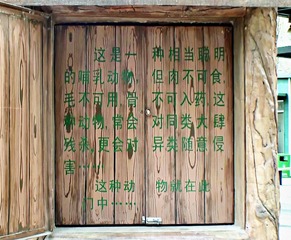 这是一种相当聪明
的哺乳动物，但肉不可食，
毛不可用，骨不可入药，这
种动物，常会对同类大肆
残杀，更会对异类随意侵
害……
这种动物就在此
门中……